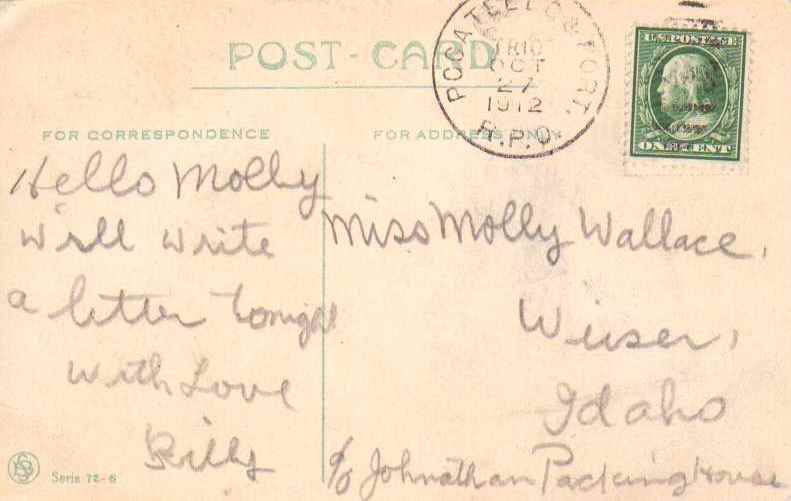 POST-CARD
POCATELLO & PORT.
TR10
OCT
27
1912
R.P.O.
U.S. POSTAGE
ONE CENT
FOR CORRESPONDENCE
FOR ADDRESS ONLY
Hello Molly
Will write
a letter tonight
With Love
Billy
Miss Molly Wallace,
Weiser,
Idaho
c/o Johnathan Packing House
Serie 72-6